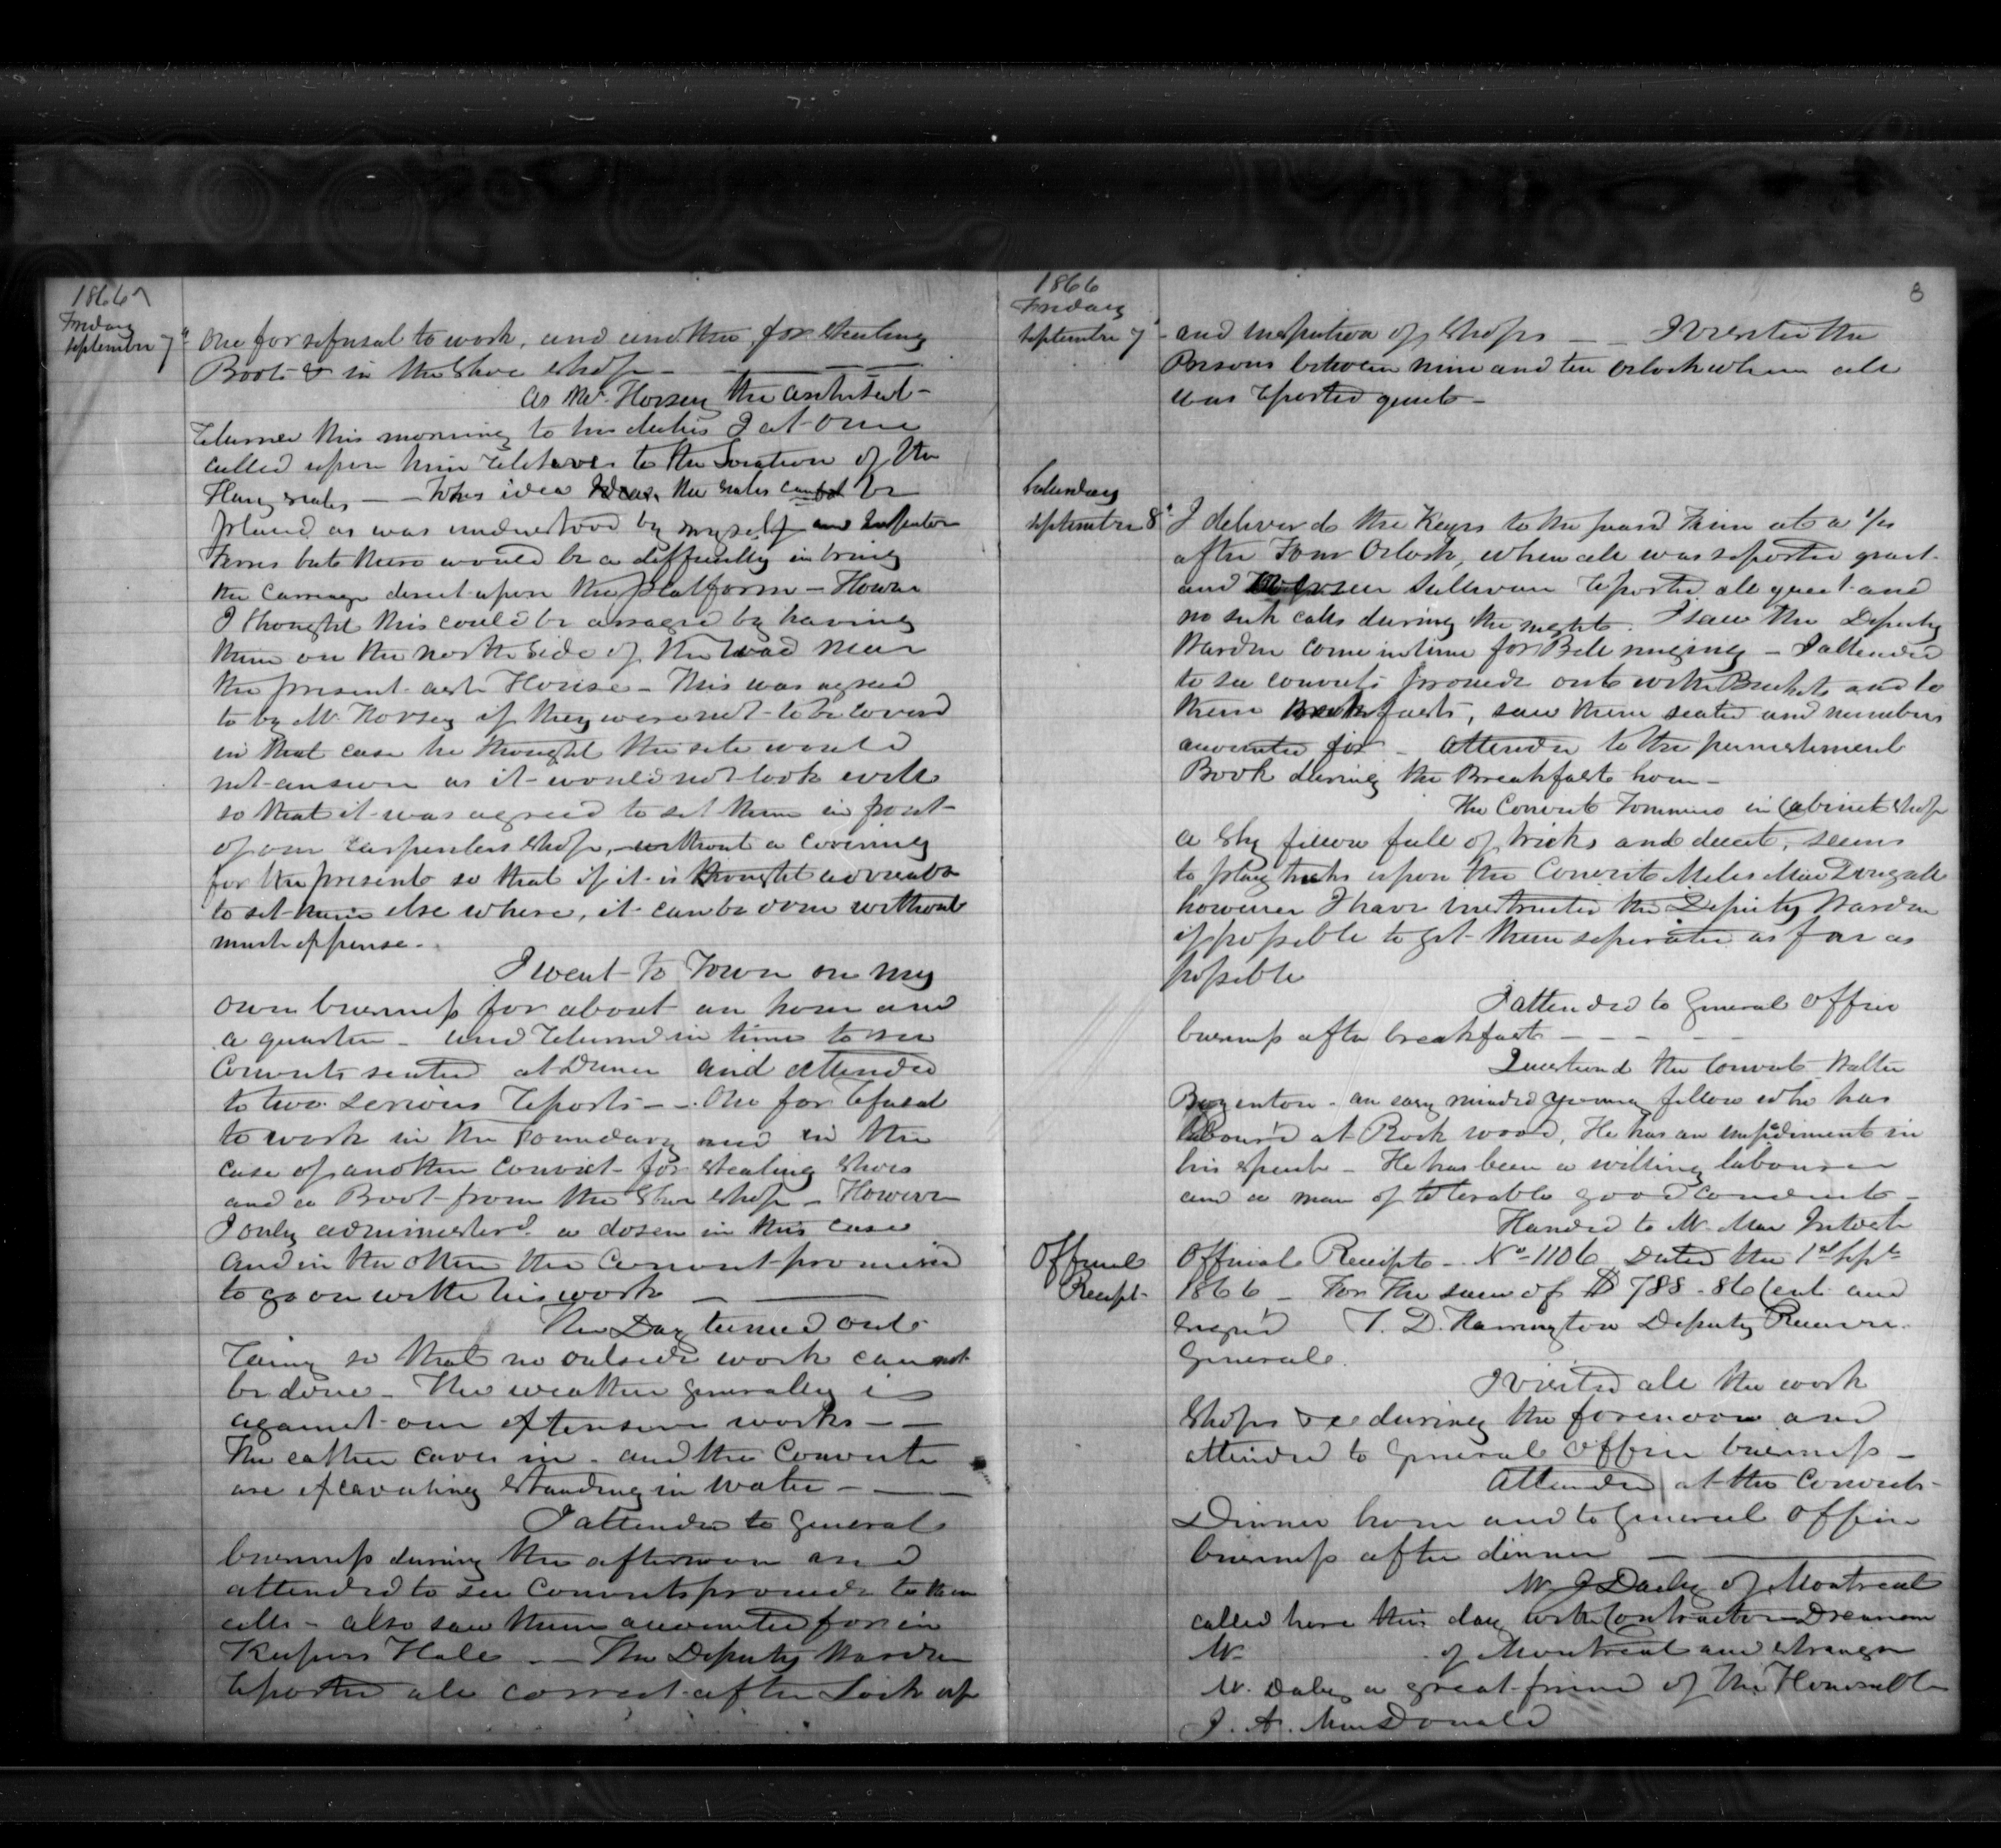 1866
Friday
September 7th
one for refusal to work, and another for stealing
Boots & in the Shoe Shop —
As Mr. Horsey the architect
returned this morning to his duties I at once
called upon him relative to the Location of the
Hay scales — His idea was the scales can not be
placed as was understood by myself and Inspector
Ferres but there would be a difficulty in bring
the carriage direct upon the platform — Howevr
I thought this could be arraged by having
them on the north side of the road near
the present ash House — This was agreed
to by Mr Horsey if they were not to be coverd
in that case he thought the site would
not answer as it would not look well
so that it was agreed to set them in front
of our Carpenters Shop, without a covering
for the present so that if it is thought advisable
to set them else where, it can be done without
much expense.
I went to Town on my
own business for about an hour and
a quarter — and returned in time to see
Convicts seated at Dinner and attended
to two serious reports — One for refusal
to work in the Foundary and in the
case of another convict for stealing Shoes
and a Boot from the Shoe Shop — However
I only administerd a dosen in this case
and in the other the Convict promised
to go on with his work —
The Day turned out
rainy so that no outside work can not
be done — The weather generally is
against our extensive works —
The earthen caves in — and the Convicts
are excavating standing in water —
I attended to general
business during the afternoon and
attended to see Convicts proceede to their
cells — also saw them accounted for in
Keepers Hall — The Deputy Warden
reported all correct after Lock up
1866
Friday
September 7
8
and inspection of Shops — I visited the
Prisons between nine and ten Oclock when all
was reported quiet —
Saturday
September 8th
I deliverd the Keys to the guard Firm at a 1/4
after Four Oclock, when all was reported quiet
and Keeper Sullivan reported all quiet and
no sick calls during the night. I saw the Deputy
Warden come in time for Bell ringing — I attended
to see convicts proceede out with Buckets and to
their Breakfasts, saw them seated and numbers
accounted for — Attended to the punishment
Book during the Breakfast hour —
The Convict Tommins in Cabinet Shop
a Sly fellow full of tricks and deceit, seems
to play tricks upon the Convict Miles MacDougall
however I have instructed the Deputy Warden
if possible to get them seperated as far as
possible
I attended to general office
business after breakfast —
Questiond the Convict Walter
Boyenton — an easy minded young fellow who has
Labour'd at Rock wood, He has an impediment in
his speech — He has been a willing labourer
and a man of tolerable good conduct —
Handed to Mr. Mac Intosh
Official
Receipt
Official Receipt — No 1106 Dated the 1st Sept
1866 — For the sum of $ 788 - 86 Cent and
Signed T. D. Harrington Deputy Receiver
General.
I visited all the work
Shops &c during the forenoon and
attended to general office business —
Attended at the Convicts
Dinner hour and to general office
business after dinner —
Mr J Daley of Montreal
called here this day with Contractor Drennan
Mr of Montreal and stranger
Mr. Daley a great friend of the Honorable
J. A. MacDonald